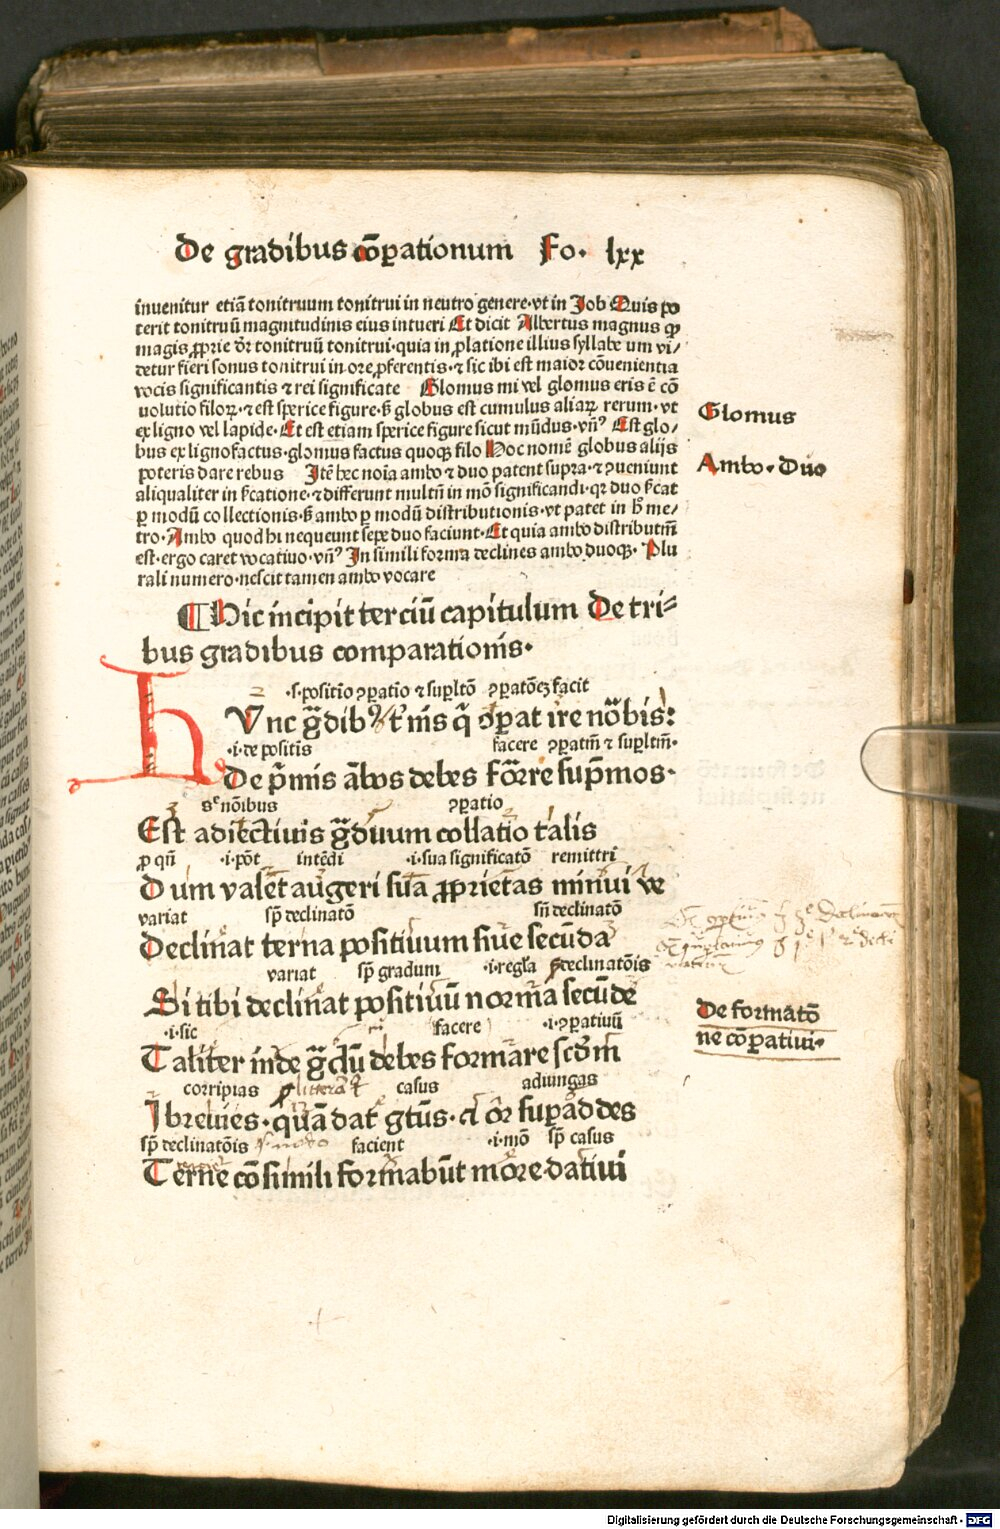 De gradibus cōꝑationum Fo. lxx
inuenitur etiā tonitruum tonitrui in neutro genere·vt in Job Quis po
terit tonitruū magnitudinis eius intueri Et dicit Albertus magnus ꝙ
magis ꝓprie dr̄ tonitruū tonitrui·quia in ꝓlatione illius syllabe um vi/
detur fieri sonus tonitrui in ore ꝓferentis·⁊ sic ibi est maior cōuenientia
vocis significantis ⁊ rei significate Glomus mi vel glomus eris ē cō
uolutio filoꝝ·⁊ est sperice figure·ß globus est cumulus aliaꝝ rerum·vt
ex ligno vel lapide·Et est etiam sperice figure sicut mūdus·vn̄? Est glo/
bus ex ligno factus·glomus factus quoqꝫ filo Hoc nomē globus alijs
poteris dare rebus Itē hec noīa ambo ⁊ duo patent supra·⁊ ꝯueniunt
aliqualiter in ſc̄atione·⁊ differunt multū in mō significandi·qꝛ duo ſc̄at
ꝑ modū collectionis·ß ambo ꝑ modū distributionis·vt patet in h̄ me/
tro·Ambo quod hi nequeunt sepe duo faciunt·Et quia ambo distributiū
est·ergo caret vocatiuo·vn̄? In simili forma declines ambo duoqꝫ· Plu
rali numero·nescit tamen ambo vocare
¶Hic incipit terciū capitulum De tri⸗
bus gradibus comparationis·
·s·positio ꝯparatio ⁊ suꝑltō ꝯparatōeꝫ facit
HVnc g̃dibꝰ t̾nis q̄ ꝯꝑat ire nōbis:
·i·de positis facere ꝯparatiū ⁊ suꝑltiū·
De p̃mis ābos debes for̄re sup̄mos·
sꝫ nōibus ꝯpatio
Est adiectiuis g̃duum collatio talis
ꝓ qn̄ ·i·pōt intēdi ·i·sua significatō remittri
Dum valet augeri sua ꝓprietas minui ve
variat sp̄ declinatō sn̄ declinatō
Declinat terna positiuum siue secūda
variat sp̄ gradum ·i·regla declinatōis
Si tibi declinat positiuū norma secūde
·i·sic facere ·i·ꝯpatiuū
Taliter inde g̃dū debes formare scd̄m
corripias casus adiungas
I breuies·quā dat gtūs· or suꝑaddes
sp̄ declinatōis facient ·i·mō sp̄ casus
Terne cōsimili formabūt more datiui
Glomus
Ambo·Duo
De formatō
ne cōꝑatiui·
Digitalisierung gefördert durch die Deutsche Forschungsgemeinschaft - DFG